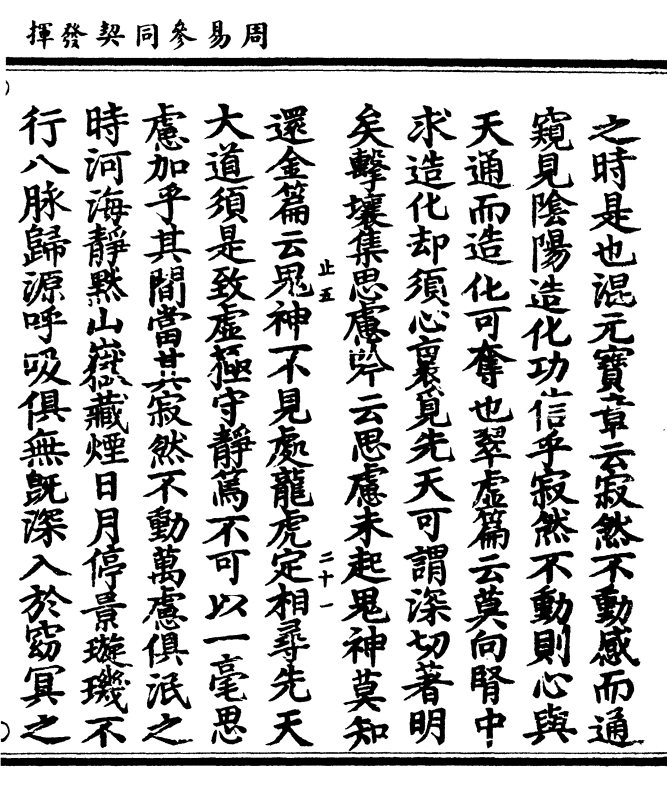 周易參同契發揮
之時是也混元寶章云寂然不動感而通
窺見陰陽造化功信乎寂然不動則心與
天通而造化可奪也翠虛篇云莫向腎中
求造化却須心裏覓先天可謂深切著明
矣擊壤集思慮吟云思慮未起鬼神莫知
止五
二十一
還金篇云鬼神不見處龍虎定相尋先天
大道須是致虛極守靜篤不可以一毫思
慮加乎其間當其寂然不動萬慮俱泯之
時河海靜默山嶽藏煙日月停景璇璣不
行八脉歸源呼吸俱無旣深入於窈冥之